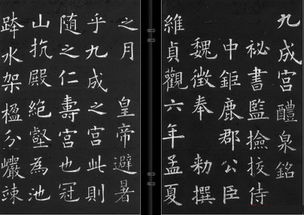 九成宮醴泉銘
秘書監撿挍侍
中鉅鹿郡公臣
魏徵奉 勑撰
維貞觀六年孟夏
之月 皇帝避暑
乎九成之宮此則
隨之仁壽宮也冠
山抗殿絕壑為池
跨水架楹分巖竦